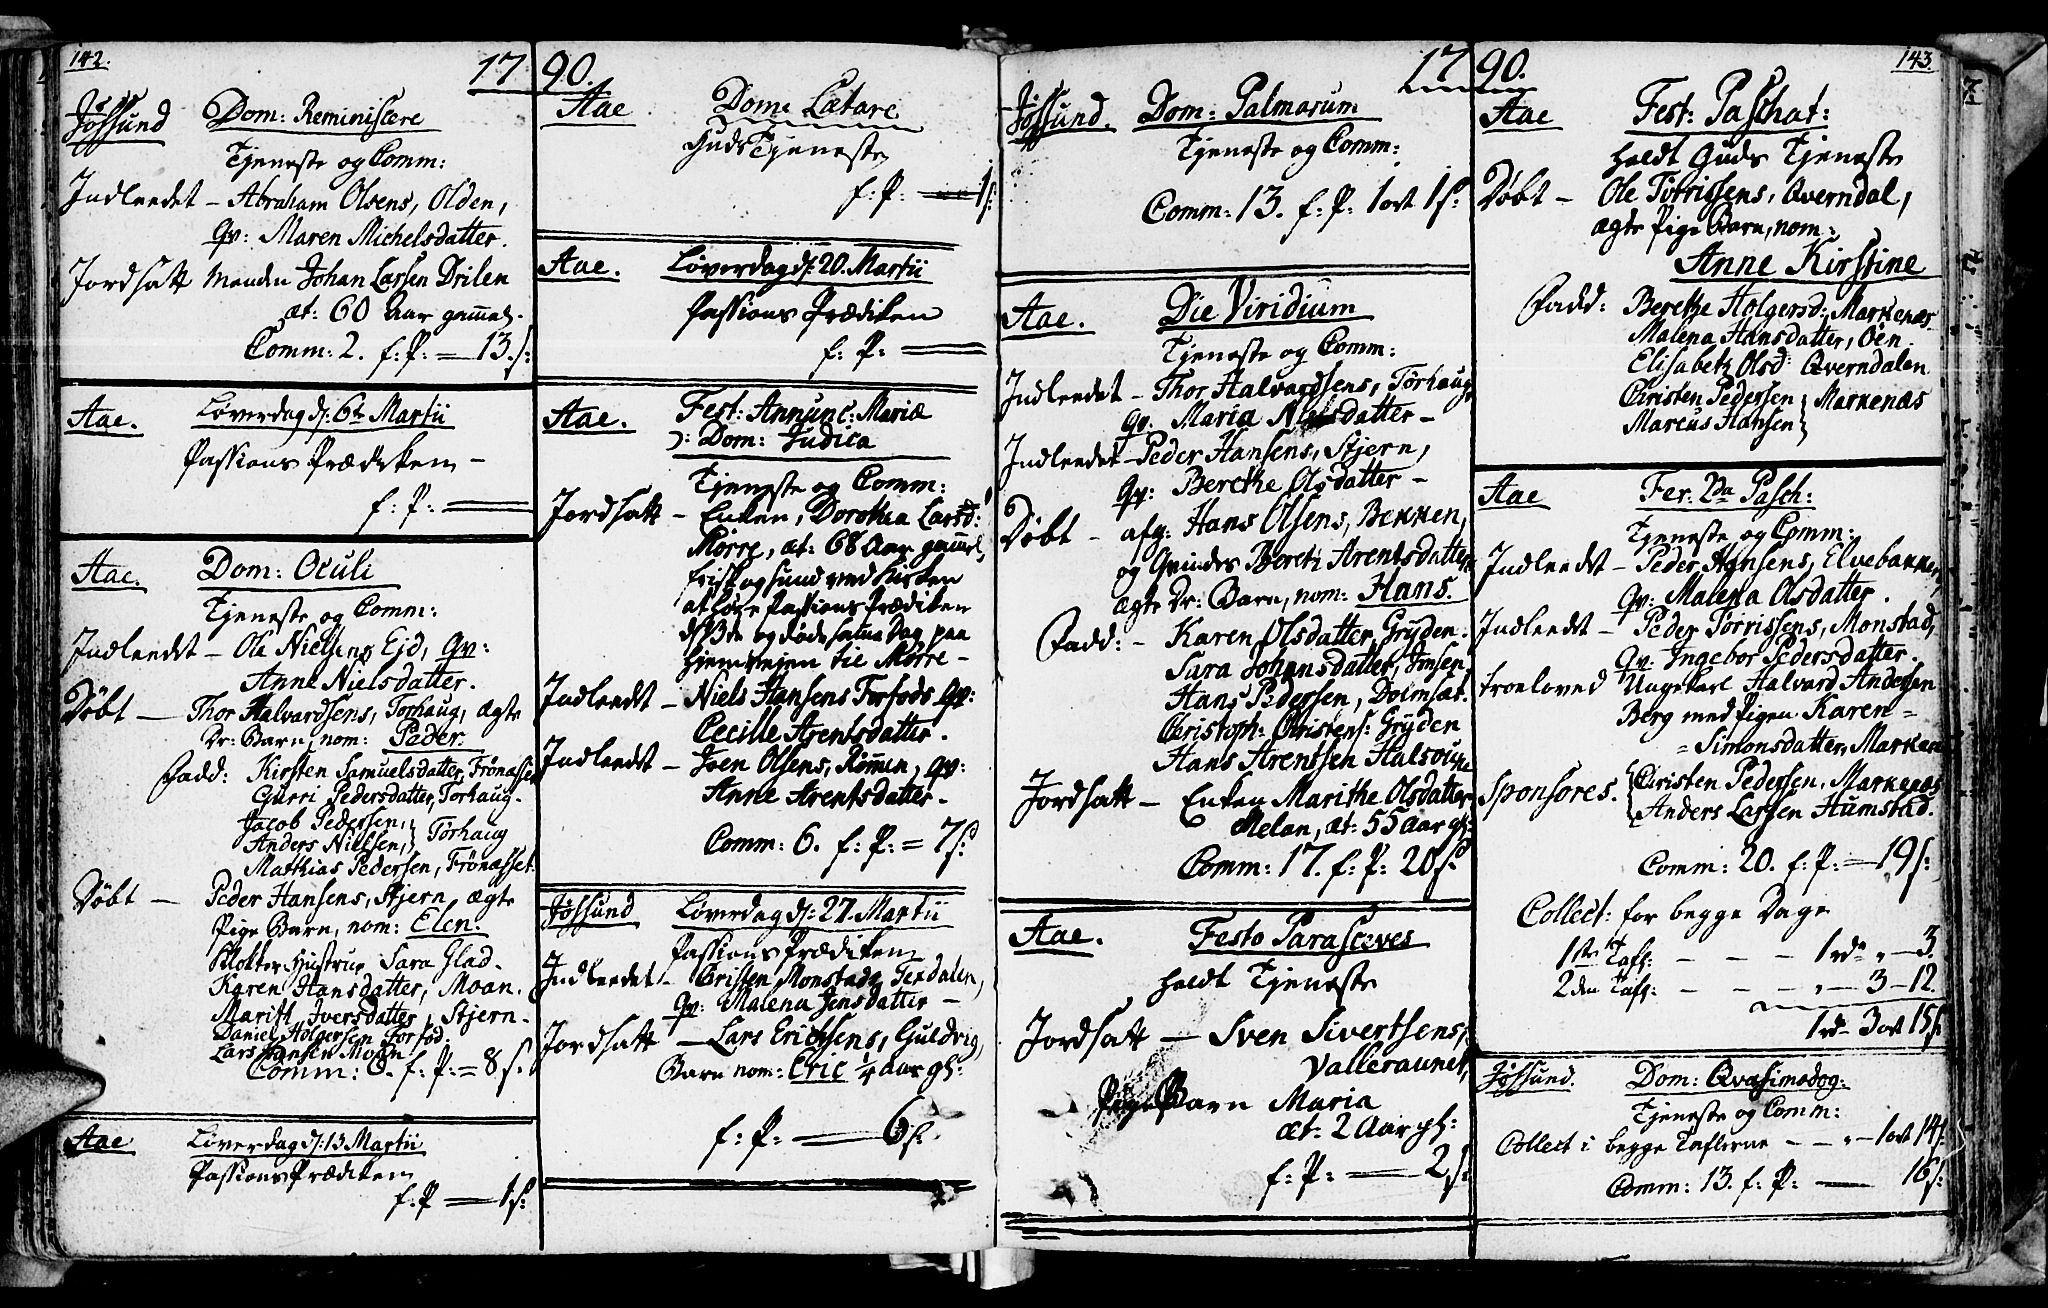 142.
17 90.
Jøssund Dom: Reminiscere
Tjeneste og Comm:
Indleedet – Abraham Olsens, Olden,
Qv: Maren Michelsdatter.
Jordsatt Manden Johan Larsen Drilen
æt: 60 Aar gammel.
Comm: 2. f: P: = 13 s:
Aae. Løverdag d: 6te Martii
Passions Prædiken –
f: P: =
Aae. Dom: Oculi
Tjeneste og Comm:
Indleedet – Ole Nielsens Ejd, Qv:
Anne Nielsdatter.
Døbt – Thor Halvardsens, Torhaug, ægte
Dr: Barn, nom: Peder.
Fadd: Kirsten Samuelsdatter, Frønasset
Gurri Pedersdatter, Torhaug.
Jacob Pedersen,
Anders Nielsen, } Tørhaug
Matthias Pedersen, Frønasset.
Døbt – Peder Hansens, Stjern ægte
Pige Barn, nom: Elen.
Klokker Hustrue Sara Glad.
Karen Hansdatter, Moan.
Maritt Iversdatter, Stjern.
Daniel Holgersen Forfod.
Lars Hansen Moan
Comm: 8. f: P: = 8 s.
Aae Løverdag d: 13 Martii
Passions Prædiken
f. P = 1 s:
Aae Dom: Lætare
Guds Tjeneste
f: P: = 1 s:
Aae. Løverdag d: 20. Martii
Passions Prædiken
f: P: =
Aae. Fest: Annunc: Mariæ
ɔ: Dom: Judica
Tjeneste og Comm:
Jordsatt – Enken, Dorothea Larsd:
Mørre, æt: 68 Aar gammel,
frisk og sund ved Kirken
at høre Passions Prædiken
d: 13de og døde samme Dag paa
Hjemvejen til Mørre –
Indleedet – Niels Hansens Forfods Qv:
Cecille Arentsdatter.
Indleedet – Iven Olsens, Rømmen, Qv:
Anne Arentsdatter.
Comm: 6. f: P: = 7 s:
Jøssund Løverdag d: 27. Martii
Passions Prædiken
Indleedet – Christen Monstads Terdalen,
Qv: Malena Jensdatter –
Jordsatt – Lars Erichsens, Guldvig,
Barn nom: Eric 1/4 Aar gl:
f: P: – 6 s:
143.
17 90.
Jøssund. Dom: Palmarum
Tjeneste og Comm:
Comm: 13. f: P: 1 ort 1 s:
Aae. Die Viridium
Tjeneste og Comm:
Indleedet – Thor Halvardsens, Tørhaug
Qv. Maria Nielsdatter –
Indleedet – Peder Hansens, Stjern,
Qv: Berethe Olsdatter –
Døbt – afg: Hans Olsens, Bekken,
og Qvindes Beret: Arentsdatter
ægte Dr: Barn, nom: Hans.
Fadd: – Karen Olsdatter, Gryden.
Sara Johansdatter, Imsen.
Hans Pedersen, Dolmsæt.
Christoph: Christens: Gryden
Hans Arentsen
Jordsatt – Enken Marithe Olsdatter
Melan, æt: 55 Aar gl:
Comm: 17. f: P: 20 s:
Aae. Festo Parasceves
holdt Tjeneste
Jordsatt – Sven Sivertsens,
Valleraunet,
Pige Barn Maria
æt: 2 Aar gl:
f: P: – 2 s:
Aae Fest: Paschat:
holdt Guds Tjeneste
Døbt – Ole Torrissens, Qverndal,
ægte Pige Barn, nom:
Anne Kirstine
Fadd: Berethe Holgersd: Markenæs
Malena Hansdatter, Öen.
Elisabeth Olsd: Qverndalen
Christen Pedersen } Markenæs
Marcus Hansen
Aae Fer: 2da Pasch:
Tjeneste og Comm:
Indleedet – Peder Hansens, Elvebakken,
Qv: Malena Olsdatter.
Indleedet – Peder Torrissens, Monstad,
Qv: Ingebor Pedersdatter.
Troeloved Ungekarl Halvard Andersen
Berg med Pigen Karen =
= Simonsdatter, Marken
Sponsores. { Christen Pedersen, Markenæs
Anders Larsen Humstad.
Comm: 20. f: P: – 19 s:
Collect: for begge Dage
1ste Tafl: – – – 1 rd " – 3.
2den Tafl: – – – " – 3 – 12.
1 rd 3 ort 15 s
Jøssund. Dom: Qvasimodog:
Tjeneste og Comm:
Collect i begge Taflerne – – " – 1 ort 14 s
Comm: 13. f: P: – 16 s: